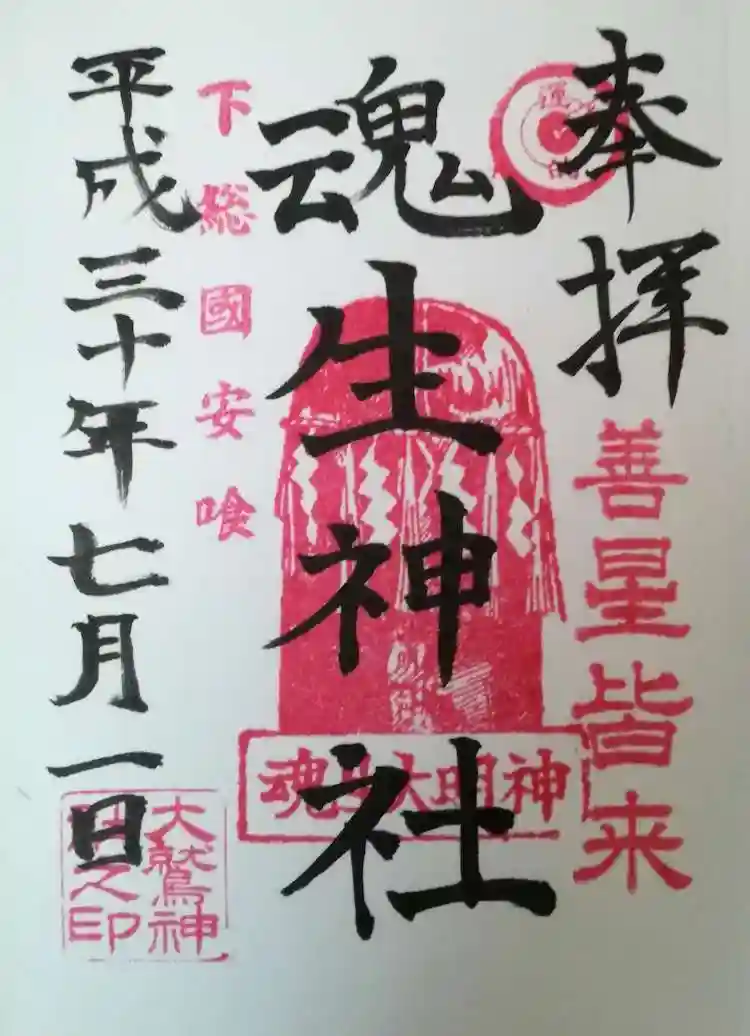 奉拝
善星皆来
魂生神社
魂生大明神
下総國安喰
平成三十年七月一日
大鷲神
社之印